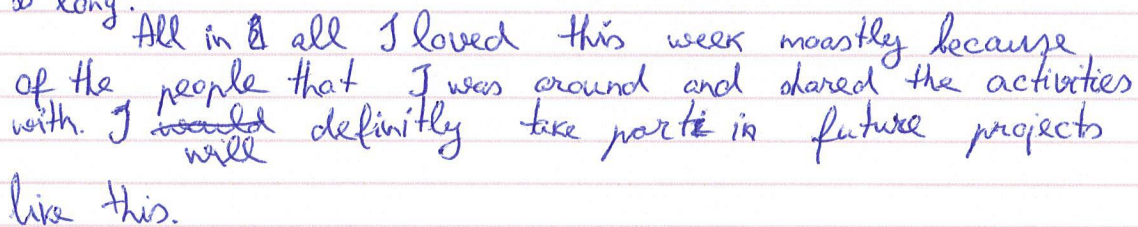 so long.
All in all I loved this week moastly because
of the people that I was around and shared the activities
with. I would definitly take part in future projects
will
like this.